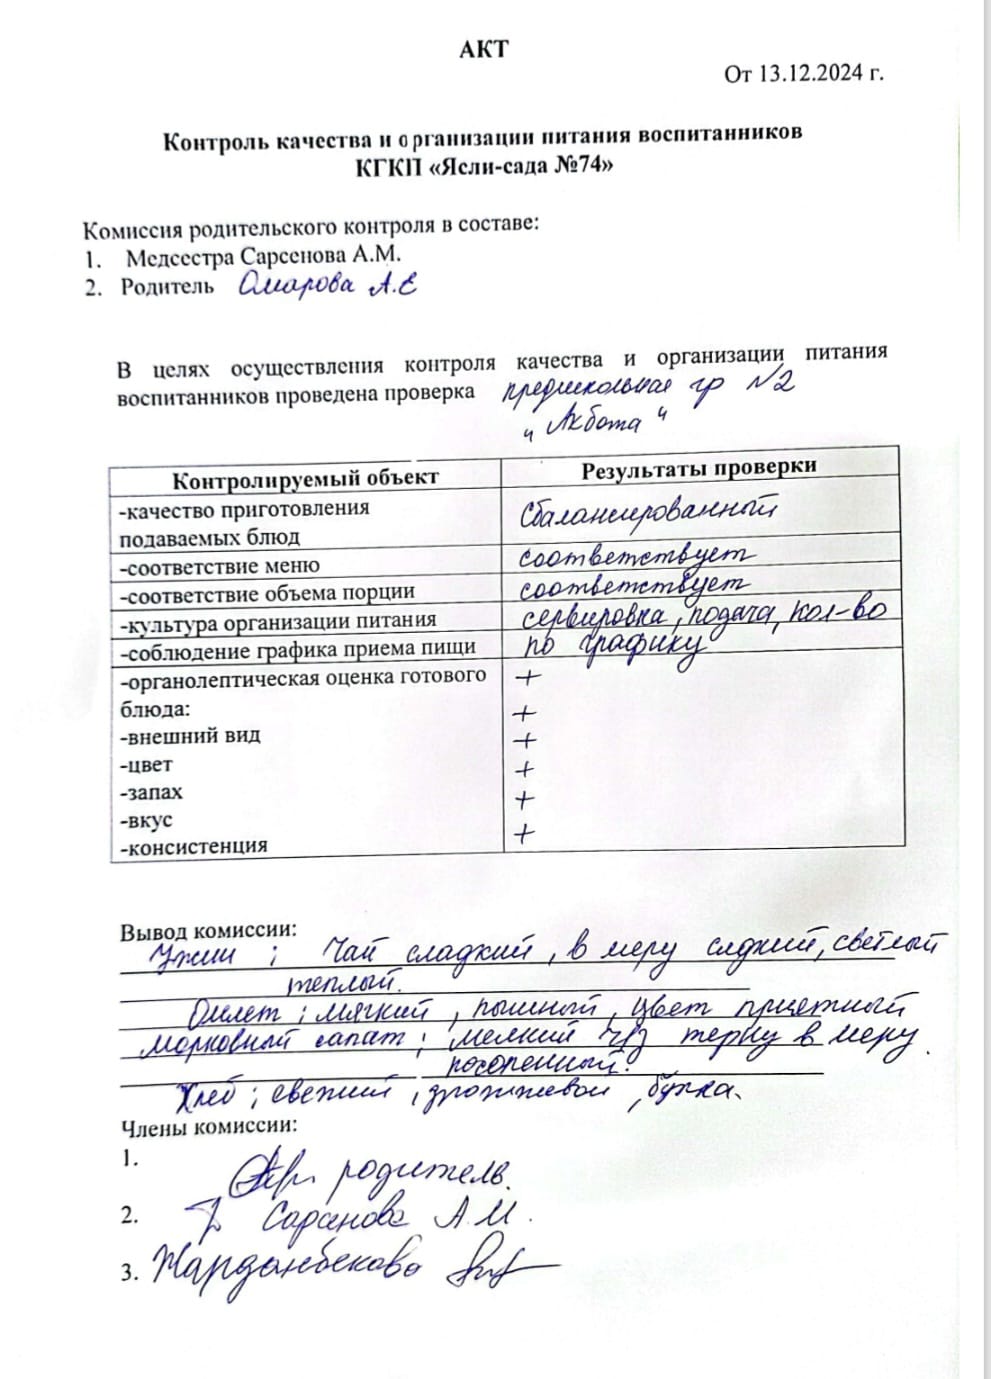 АКТ
От 13.12.2024 г.
Контроль качества и организации питания воспитанников
КГКП «Ясли-сада №74»
Комиссия родительского контроля в составе:
1. Медсестра Сарсенова А.М.
2. Родитель Омарова А.Е
В целях осуществления контроля качества и организации питания
воспитанников проведена проверка предшкольная гр №2
"Акбота"
Контролируемый объект Результаты проверки
-качество приготовления
подаваемых блюд Сбалансированный
-соответствие меню соответствует
-соответствие объема порции соответствует
-культура организации питания сервировка, подача, кол-во
-соблюдение графика приема пищи по графику
-органолептическая оценка готового +
блюда: +
-внешний вид +
-цвет +
-запах +
-вкус +
-консистенция
Вывод комиссии:
Ужин ; Чай сладкий, в меру сладкий, светлый
теплый.
Омлет ; мягкий, пышный, цвет приятный
морковный салат ; мелкий терку в меру
посоленный.
Хлеб ; свежий, дрожжевой, булка.
Члены комиссии:
1. родитель.
2. Сарсенова А.М.
3. Жарданбекова